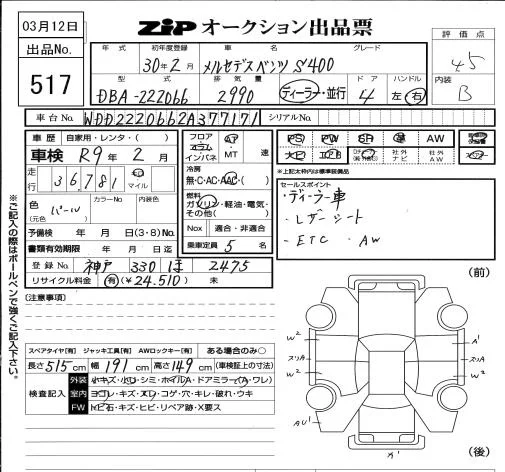 03月12日
ZIP オークション出品票
評価点
出品No.
517
年式 初年度登録 車名 グレード
30年2月 メルセデスベンツ S400
4.5
型式 排気量 ドア ハンドル
DBA-222066 2990 ディーラー・並行 4 左・右
内装
B
車台No. WDD2220662A377171 シリアルNo.
車歴 自家用・レンタ・( )
車検 R9年2月
走行 36,781 キロ マイル
色(元色) パール カラーNo. 内装色
予備検 年 月 日(3・8)No.
書類有効期限 年 月 日
登録No. 神戸 330 ほ 2475
リサイクル料金 有(¥24,510) 未
フロア コラム インパネ AT MT 速
冷房
無・C・AC・AAC・( )
燃料
ガソリン・軽油・電気・その他( )
Nox 適合・非適合
乗車定員 5 名
PS PW SR 革 AW
ナビ 社外ナビ 社外AW
*上記太枠内は標準装備品
セールスポイント
・ディーラー車
・レザーシート
・ETC ・AW
※ご記入の際はボールペンで強くご記入下さい。
(注意事項)
(前)
スペアタイヤ[有] ジャッキ工具[有] AWロックキー[有] ある場合のみ○
長さ515cm 幅191cm 高さ149cm (車検証上の寸法)
検査記入
外装 小キズ・小凹・シミ・ホイルA・ドアミラー(A・ワレ)
室内 ヨゴレ・キズ・スレ・コゲ・穴・キレ・破れ・ウキ
FW トビ石・キズ・ヒビ・リペア跡・X要ス
W2 A1
スリA スリA
W2 W2
AU1
(後)